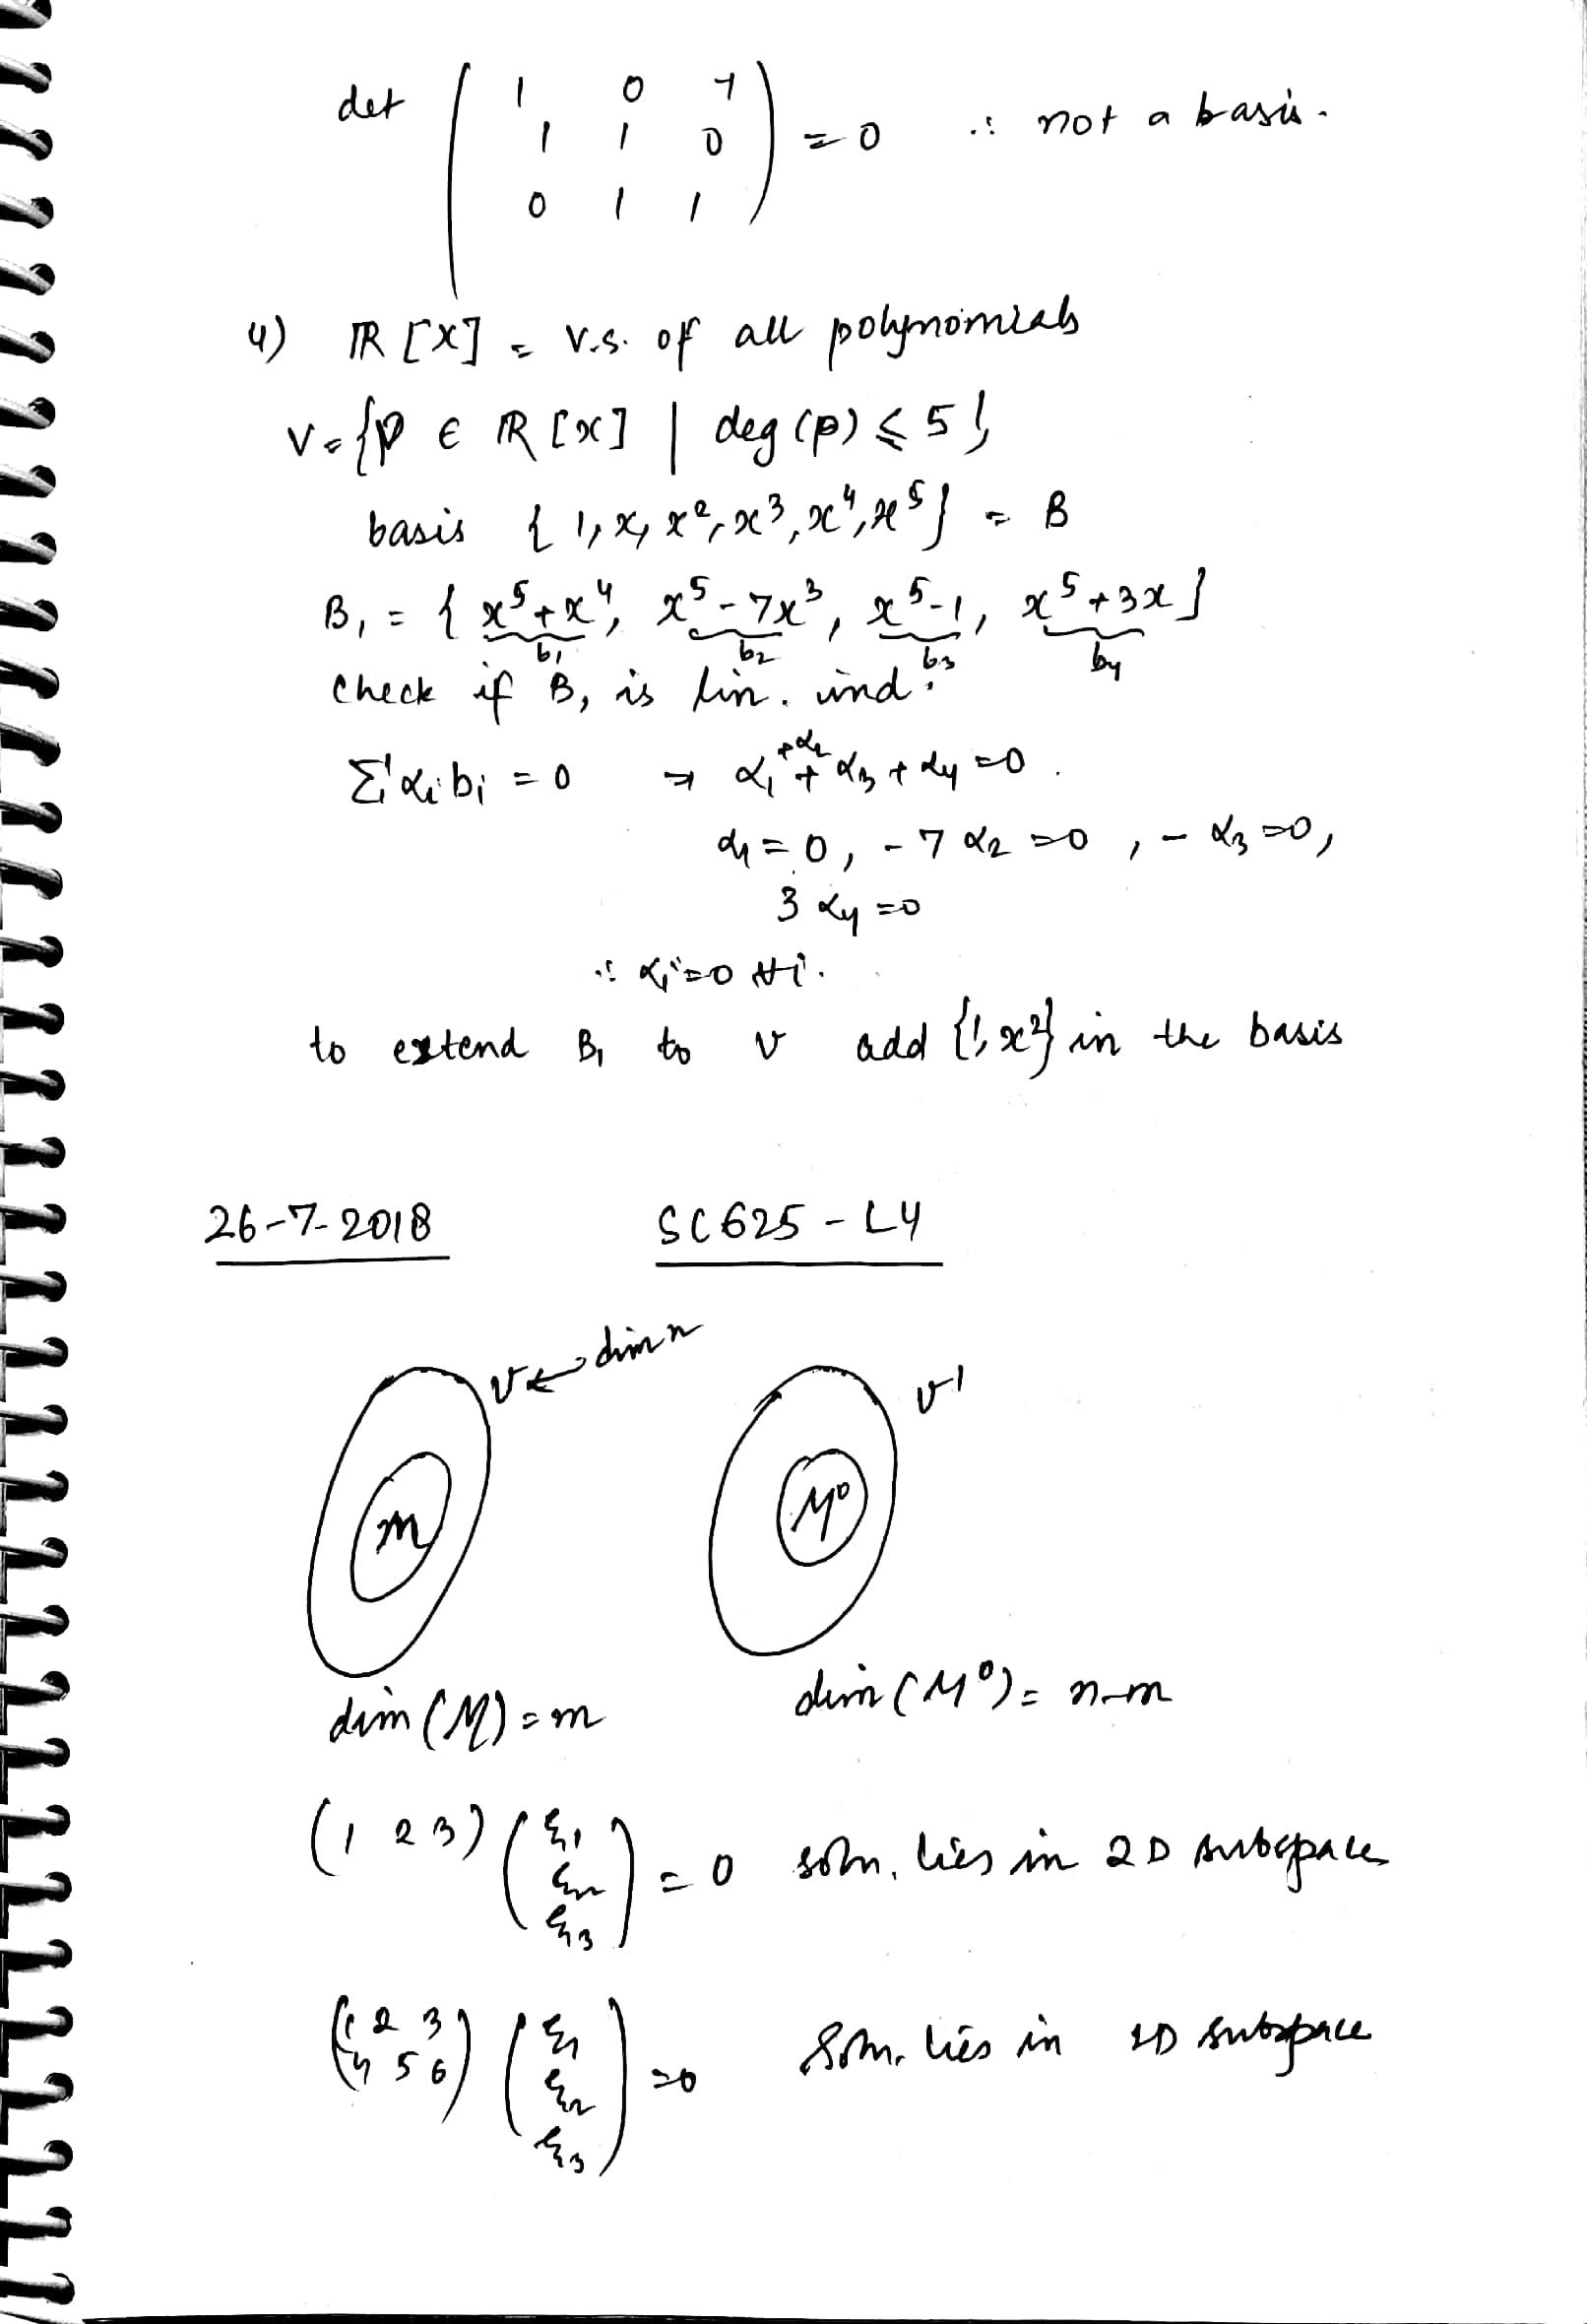 det ( 1 0 -1
1 1 0
0 1 1 ) = 0 ∴ not a basis.
4) ℝ[X] = v.s. of all polynomials
V = {p ∈ ℝ[x] | deg(p) ≤ 5}
basis {1, x, x², x³, x⁴, x⁵} = B
B₁ = {x⁵+x⁴, x⁵-7x³, x⁵-1, x⁵+3x}
b₁ b₂ b₃ b₄
Check if B₁ is lin. ind.
Σ αᵢbᵢ = 0 ⇒ α₁ +α₂ + α₃ + α₄ = 0.
α₁ = 0, -7α₂ = 0, -α₃ = 0,
3α₄ = 0
∴ αᵢ = 0 ∀i.
to extend B₁ to V add {1, x²} in the basis
26-7-2018 SC625 - L4
V ← dim n V'
M M⁰
dim(M) = m dim(M⁰) = n-m
(1 2 3) (ξ₁ ξ₂ ξ₃) = 0 soln. lies in 2D subspace
(1 2 3
4 5 6) (ξ₁ ξ₂ ξ₃) = 0 Soln. lies in 1D subspace